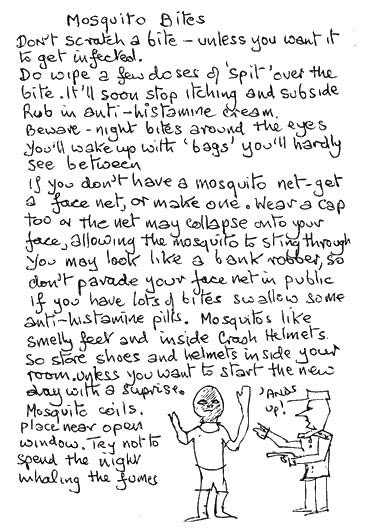 Mosquito Bites
Don't scratch a bite - unless you want it
to get infected.
Do wipe a few doses of 'spit' over the
bite. It'll soon stop itching and subside
Rub in anti-histamine cream.
Beware - night bites around the eyes
You'll wake up with 'bags' you'll hardly
see between
If you don't have a mosquito net-get
a face net, or make one. Wear a cap
too or the net may collapse onto your
face, allowing the mosquito to sting through
You may look like a bank robber, so
don't parade your face net in public
If you have lots of bites swallow some
anti-histamine pills. Mosquitos like
smelly feet and inside Crash Helmets.
So store shoes and helmets inside your
room. Unless you want to start the new
day with a suprise.
Mosquito coils.
place near open
window. Try not to
spend the night
inhaling the fumes
'ANDS
UP!